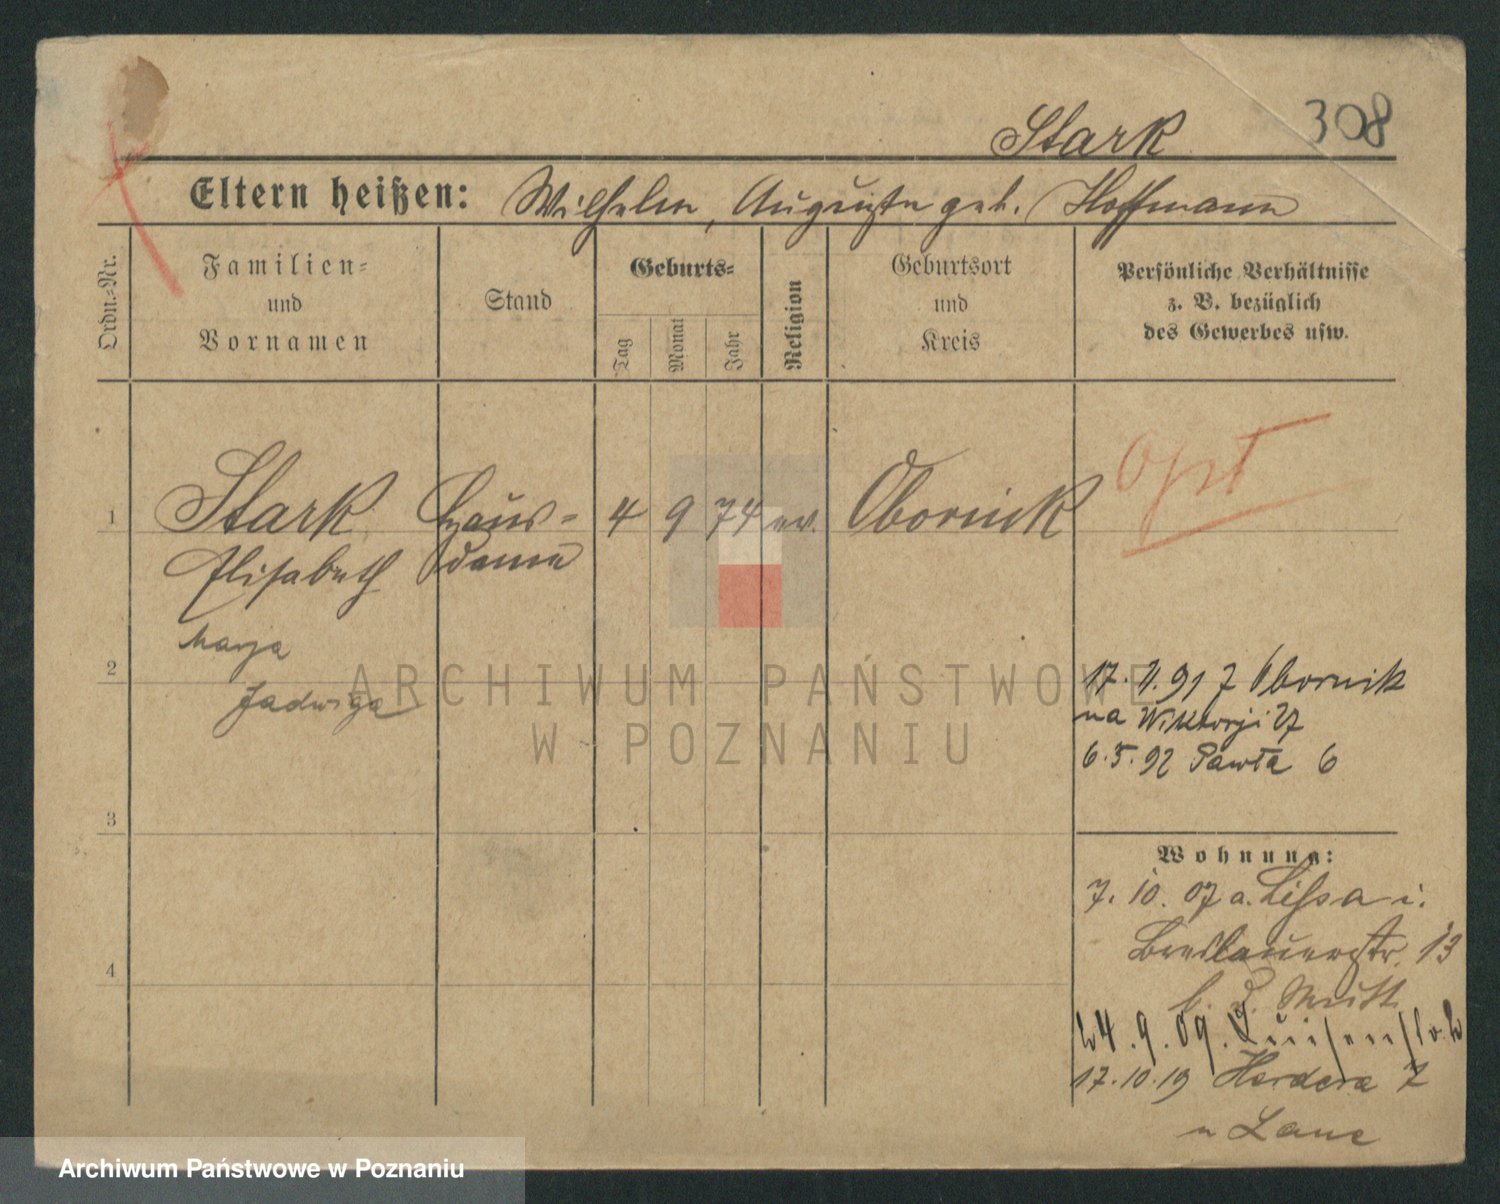 Stark
308
Eltern heißen: Wilhelm, Auguste geb. Hoffmann
Ordn.-Nr.
Familien-
und
Vornamen
Stand
Geburts-
Tag
Monat
Jahr
Religion
Geburtsort
und
Kreis
Persönliche Verhältnisse
z. B. bezüglich
des Gewerbes usw.
Opt
1 Stark Haus- 4 9 74 ev. Obornick
Elisabeth dame
Marja
2
Jadwiga
ARCHIWUM PAŃSTWOWE
W POZNANIU
Obornik
na Wiktorji 27
6.5.92 Pawła 6
3
Wohnung:
7. 10. 07 a. Lissa i.
Breslauerstr. 13
4
24.9.09. Luisenstr.
17.10.19 Herdera 7